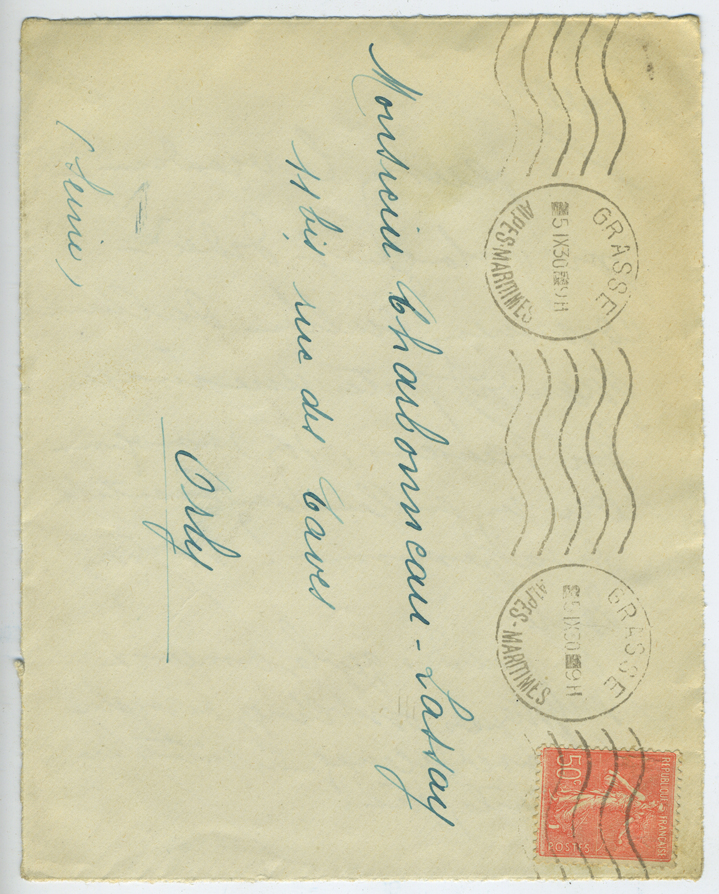 GRASSE
5 IX 30 9H
ALPES-MARITIMES
GRASSE
5 IX 30 9H
ALPES-MARITIMES
REPUBLIQUE FRANCAISE
50c
POSTES
Monsieur Charbonneau-Lassay
11 bis rue des Caves
Orly
(Seine)